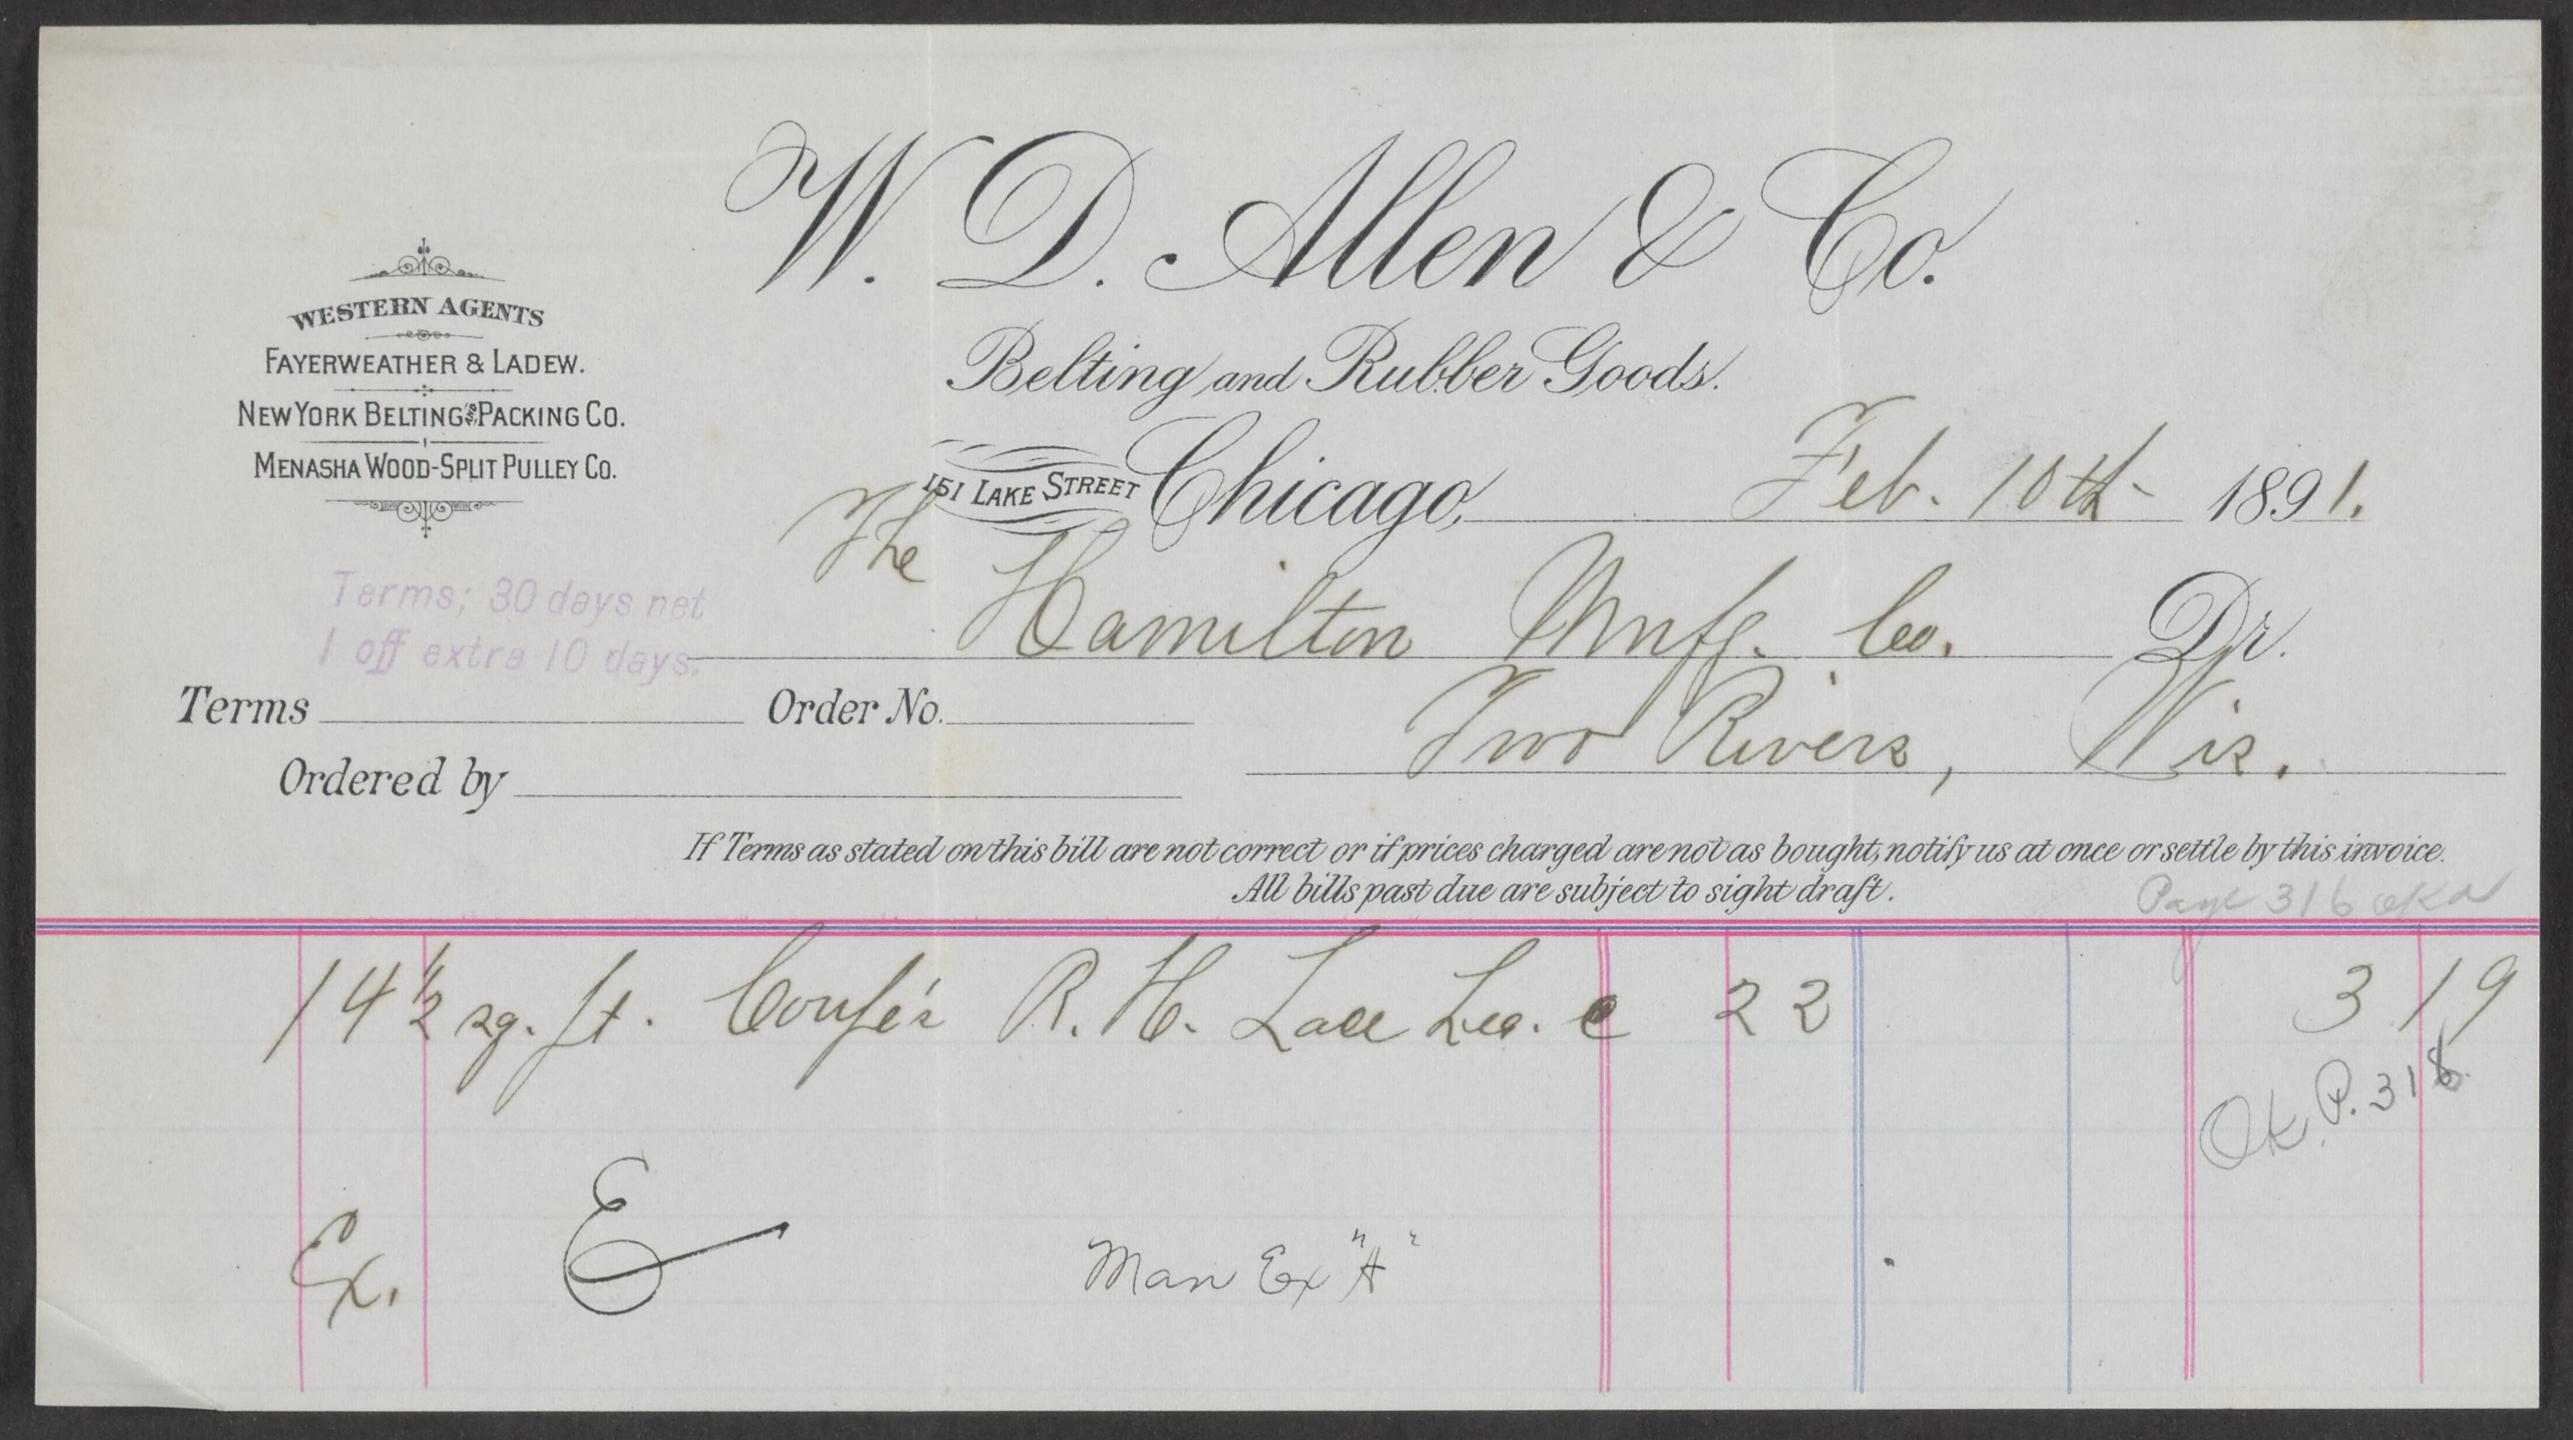 W. D. Allen & Co.
Belting and Rubber Goods.
WESTERN AGENTS
FAYERWEATHER & LADEW.
NEW YORK BELTING AND PACKING CO.
MENASHA WOOD-SPLIT PULLEY CO.
151 LAKE STREET Chicago, Feb. 10th 1891.
The Hamilton Mnfg. Co. Dr.
Terms; 30 days net
1 off extra 10 days.
Terms Order No.
Two Rivers, Wis.
Ordered by
If Terms as stated on this bill are not correct or if prices charged are not as bought, notify us at once or settle by this invoice.
All bills past due are subject to sight draft.
Page 316
14 1/2 sq. ft. R. H. Lace Lea. 22 3 19
Ok. P. 316
Ex. E
Man Ex "A"